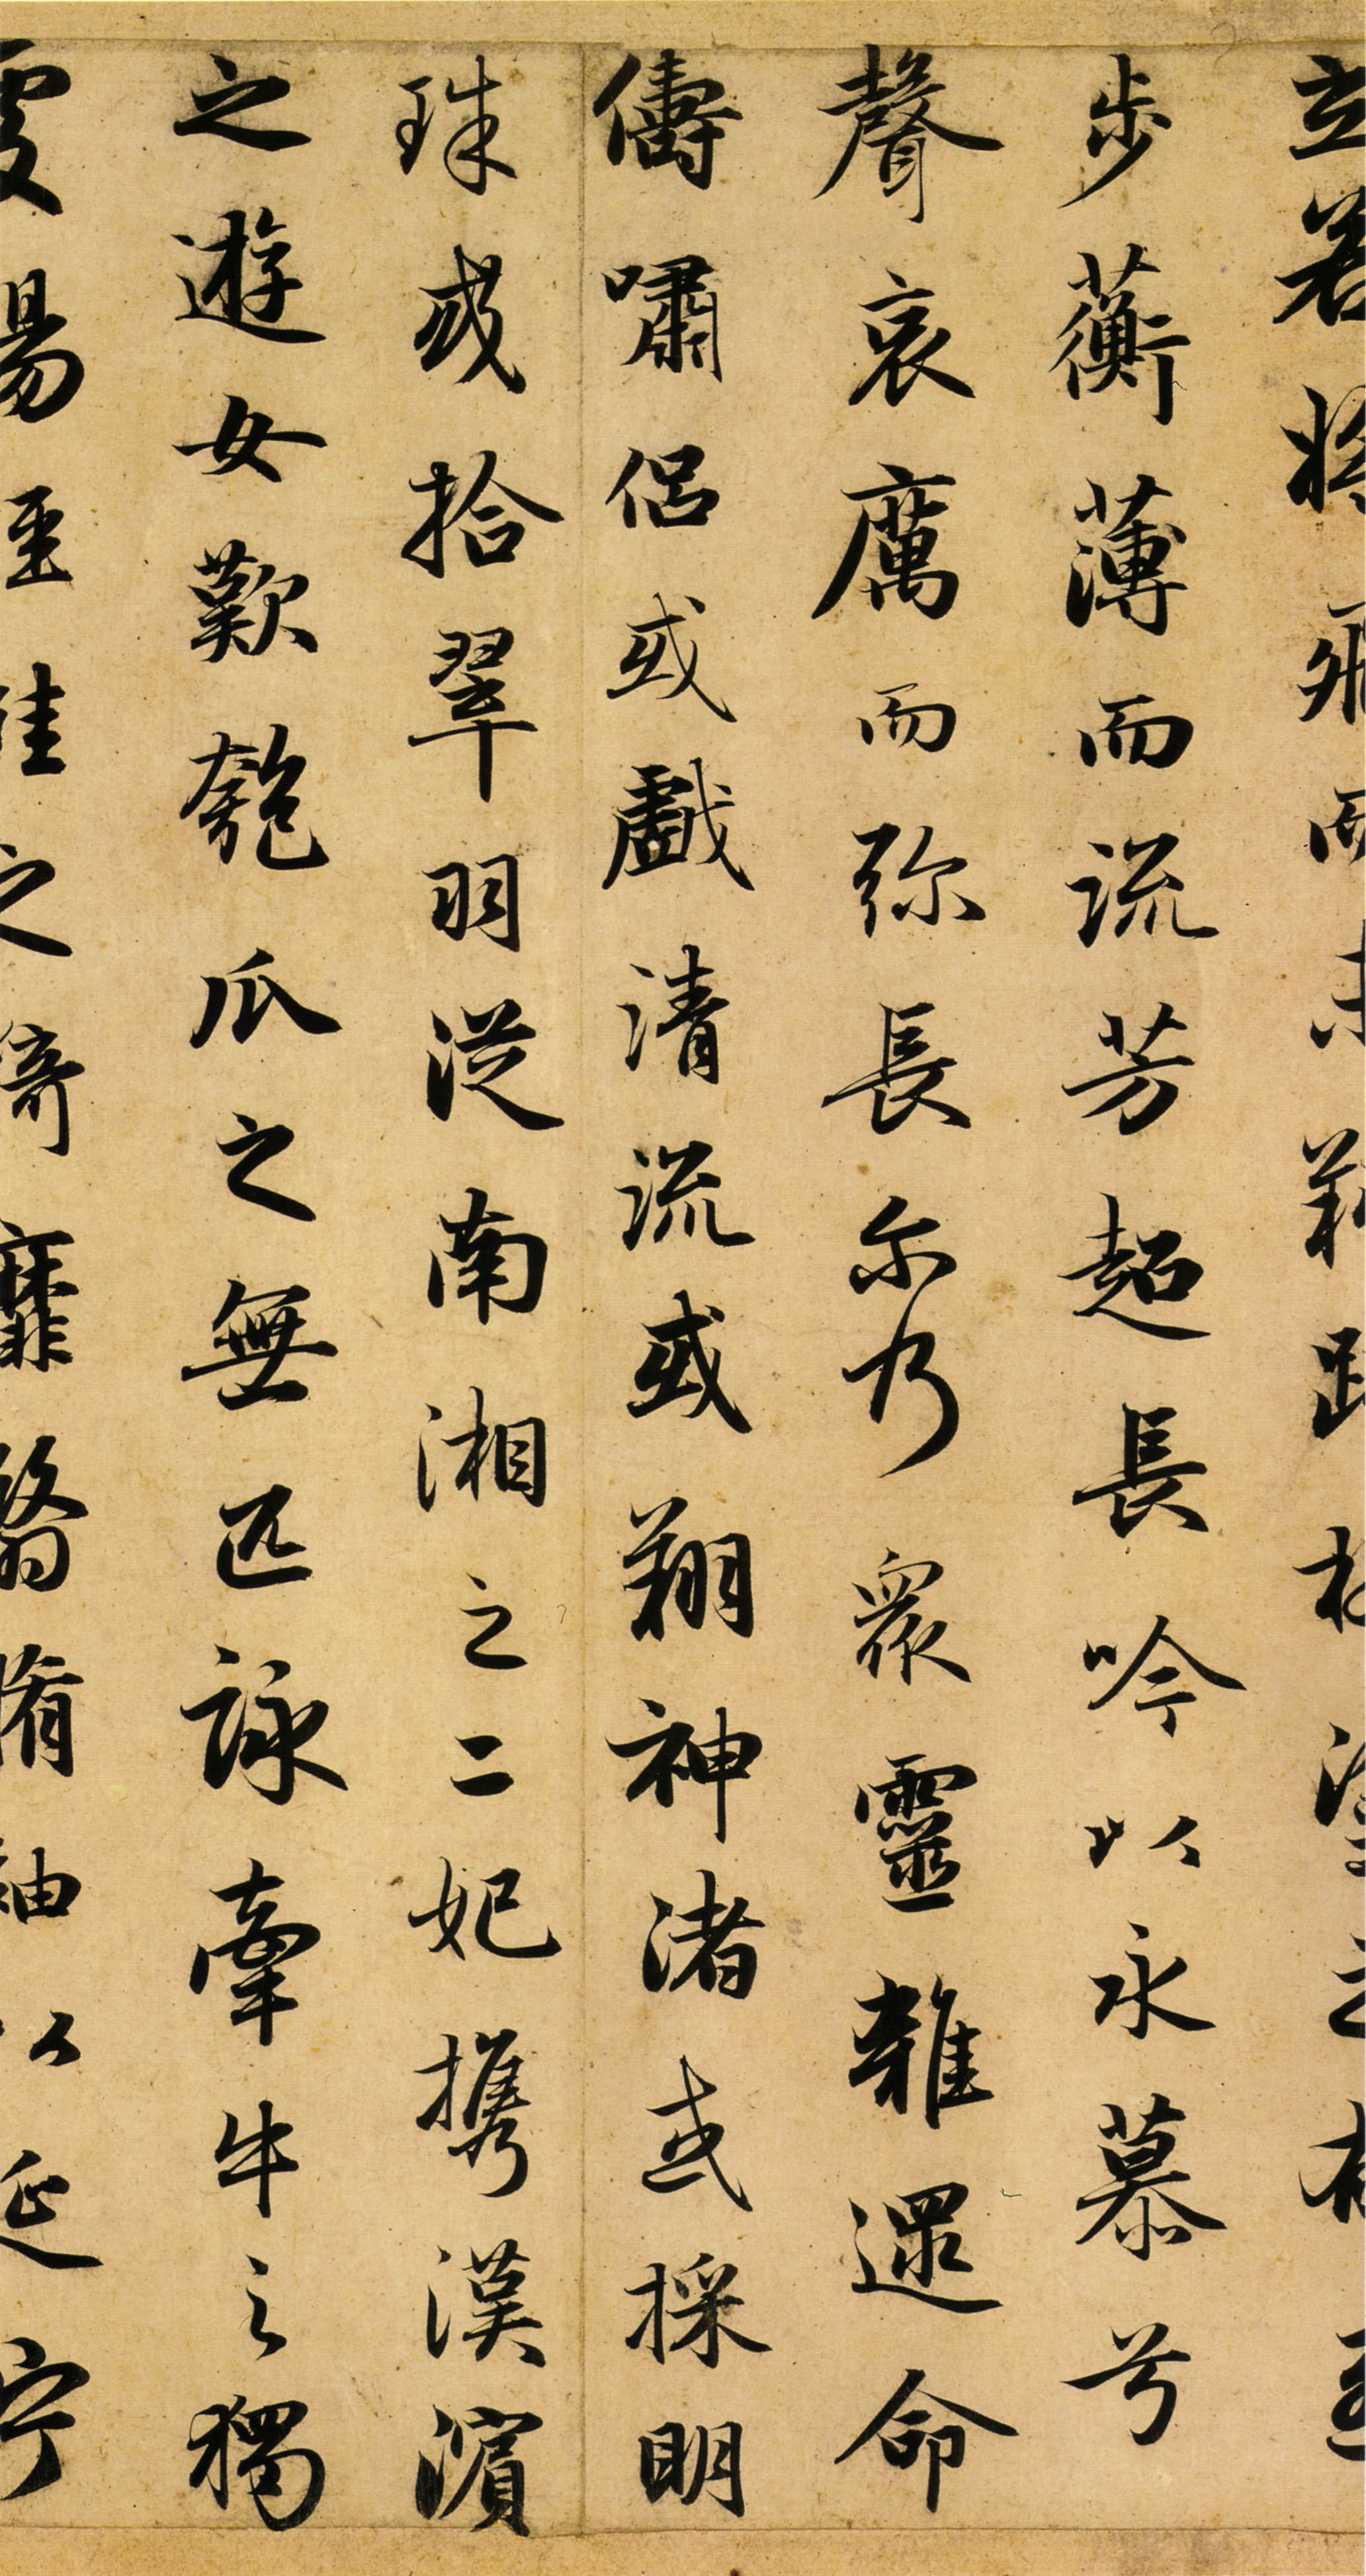 立若將飛而未翔踐椒塗之郁烈
步蘅薄而流芳超長吟以永慕兮
聲哀厲而弥長尔乃眾靈雜遝命
儔嘯侶或戲清流或翔神渚或採明
珠或拾翠羽從南湘之二妃攜漢濱
之遊女歎匏瓜之無匹詠牽牛之獨
處揚輕袿之綺靡翳脩袖以延佇